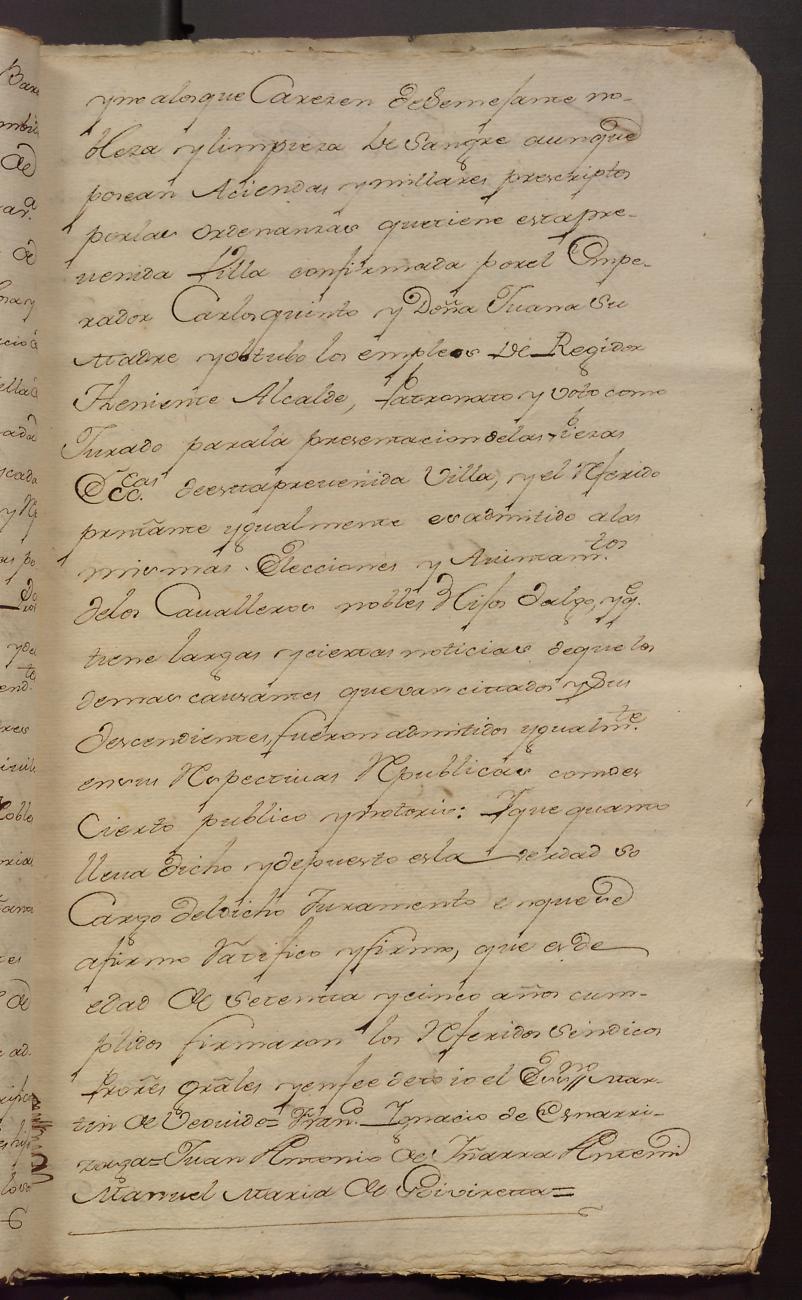 yno alosque Carezen de Semejante no-
bleza ylimpieza de Sangre aunque
posean Aciendas ymillares prescriptos
porlas ordenanzas quetiene estapre-
uenida Villa confirmada porel Empe-
rador Carlosquinto y Doña Juana Su
Madre yobtubo los empleos de Rexidor
Theniente Alcalde, Patronato y Voto como
Jurado parala presentacion delas Piezas
Ecc.cas deestaprevenida Villa, y el Referido
presnt̃ante ygualmente es admitido alas
mismas Elecciones y Aiuntam.tos
delos Cavalleros nobles Hijos dalgo, yq.e
tiene largas yciertas noticias dequelos
demas causantes quevan cittados ySus
descendientes, fueron admitidos ygualm.te
ensus Respectivas Republicas comoes
Cierto publico ynotorio: Yque quanto
lleua dicho ydepuesto esla verdad so
Cargo deldicho Juramento enque se
afirmo Ratifico yfirmo, que es de
edad de Setenta ycinco años cum-
plidos firmaron los Referidos Sindicos
Prores grãles yenfee detodo io el Essno Mar-
tin de = Fran.co Ignacio de Esnarri-
zaga = Juan Antonio de Yñarra Antemi
Manuel Maria de =